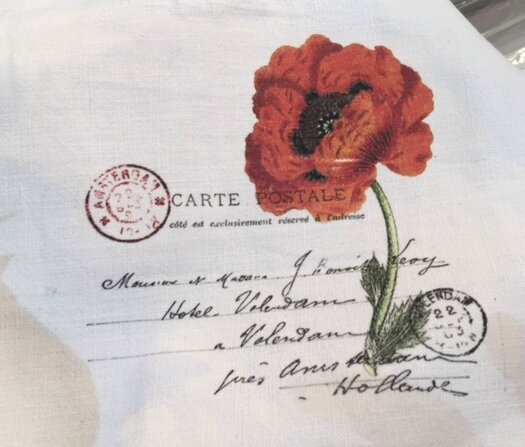 AMSTERDAM
CARTE POSTALE
côté est exclusivement réservé à l'adresse
Monsieur et Madame J Benoit Levy
Hotel Volendam
a Volendam
près Amsterdam
Hollande
LENDAM
22